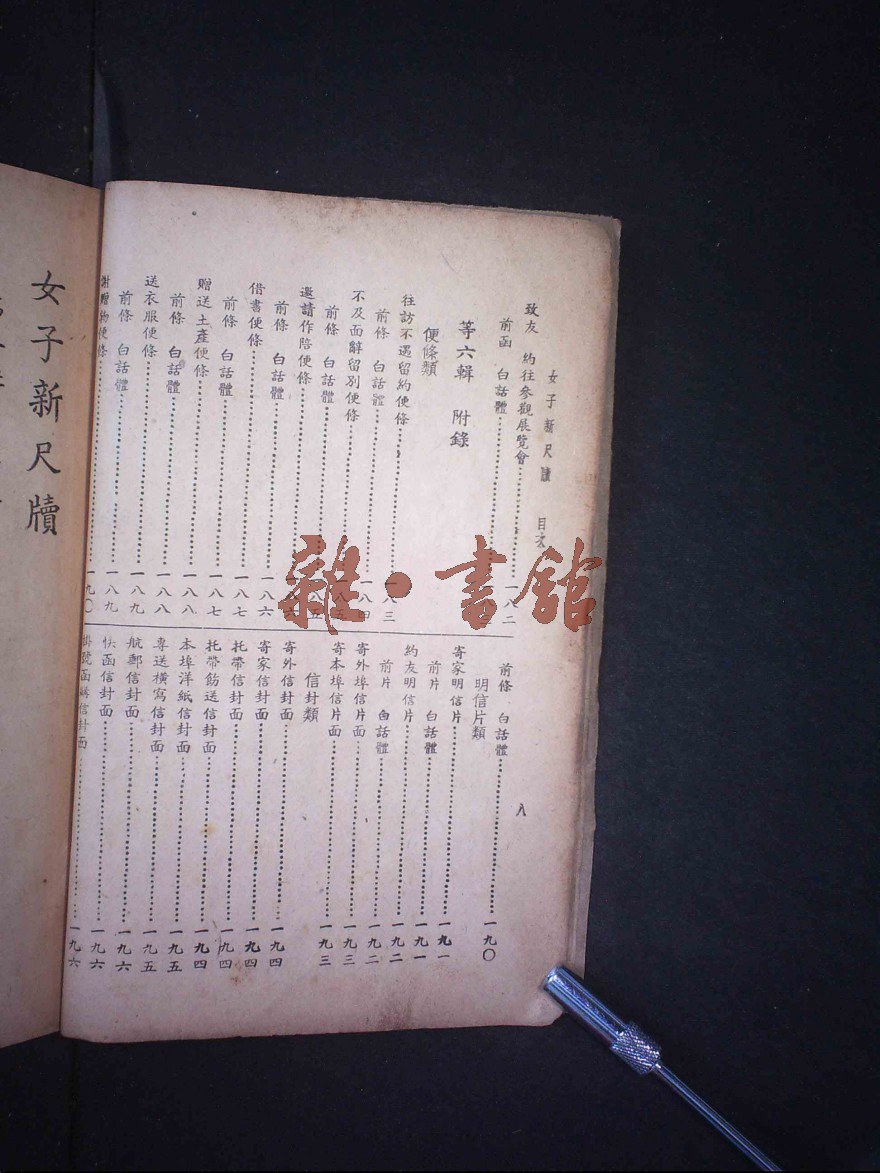 女子新尺牘 目次
致友 約往參觀展覽會
前函 白話體 一八二
等六輯 附錄
便條類
往訪不遇留約便條 一八三
前條 白話體 一八四
不及面辭留別便條
前條 白話體
邀請作陪便條
前條 白話體 一八六
借書便條
前條 白話體 一八七
贈送土產便條 一八八
前條 白話體 一八八
送衣服便條 一八九
前條 白話體 一八九
謝贈物便條 一九〇
前條 白話體 一九〇
明信片類
寄家明信片 一九一
前片 白話體 一九一
約友明信片 一九二
前片 白話體 一九二
寄外埠信片面 一九三
寄本埠信片面 一九三
信封類
寄外信封面 一九四
寄家信封面 一九四
托帶信封面 一九四
托帶筋送信封面 一九四
本埠洋紙信封面 一九五
專送橫寫信封面 一九五
航郵信封面 一九六
快函信封面 一九六
掛號函購信封面 一九六
八
女子新尺牘
雜·書館